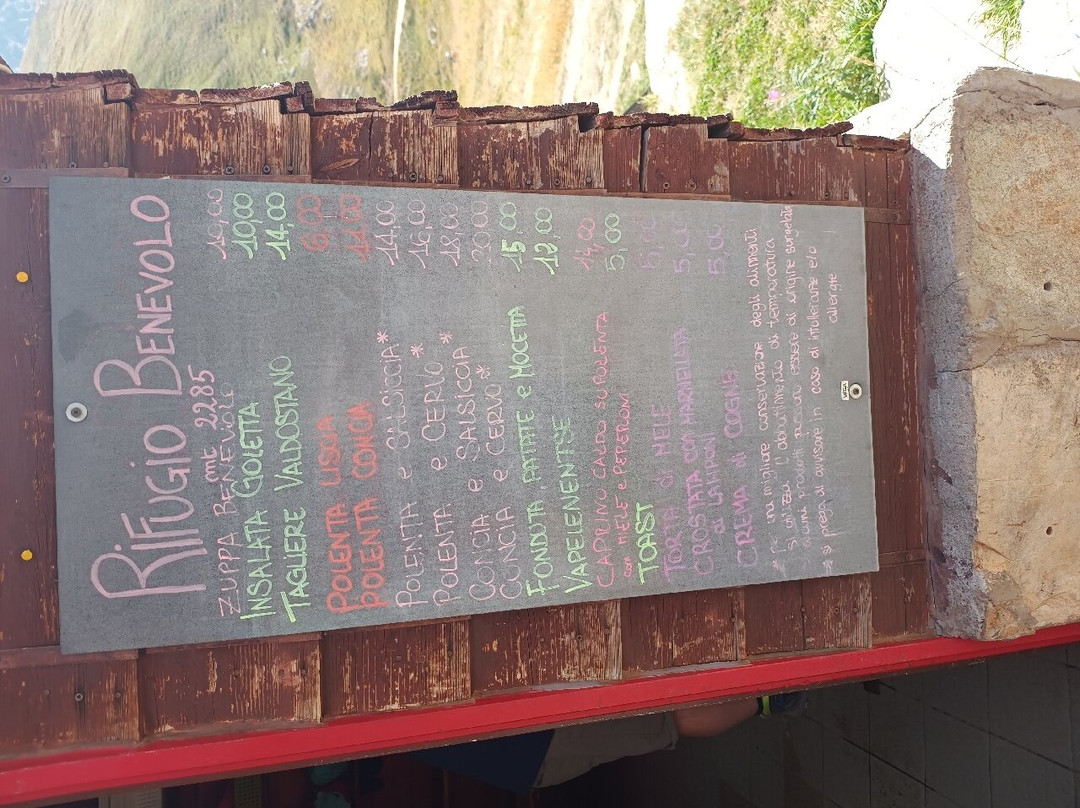 RIFUGIO BENEVOLO
mt 2285
ZUPPA BENEVOLO 10,00
INSALATA GOLETTA 10,00
TAGLIERE VALDOSTANO 14.00
POLENTA LISCIA 6,00
POLENTA CONCIA 11.00
POLENTA e SALSICCIA* 14,00
POLENTA e CERVO* 16,00
CONCIA e SALSICCIA* 18,00
CONCIA e CERVO* 20,00
FONDUTA PATATE e MOCETTA 15,00
VAPELENENTSE 12,00
CAPRINO CALDO SU POLENTA 14,00
con MIELE e PEPERONI
TOAST 5,00
TORTA di MELE 5,00
CROSTATA CON MARMELLATA 5,00
di LAMPONI
CREMA di COGNE 5,00
* per una migliore conservazione degli alimenti
si utilizza l'abbattimento di temperatura
alcuni prodotti possono essere di origine surgelata
si prega di avvisare in caso di intolleranze e/o
allergie